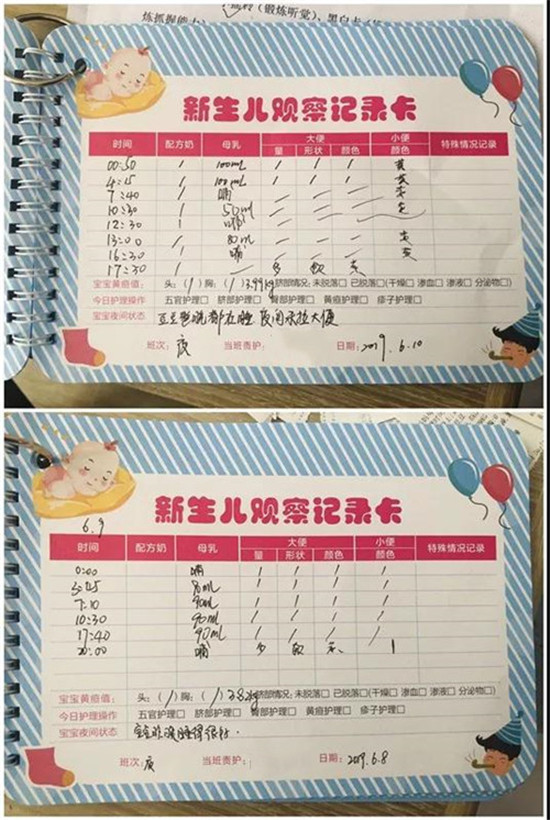 炼抓握能力
(锻炼听觉)、黑白卡
新生儿观察记录卡
时间 配方奶 母乳 大便 小便 特殊情况记录
量 形状 颜色 颜色
00:50 / 100ml / / / 黄
4:25 / 100ml / / / 黄
7:40 / 哺 / / /
10:30 / 50ml / / /
12:30 / 哺 / /
13:00 / 80ml / / /
16:30 / 哺 / / /
17:30 / 多 软
宝宝黄疸值: 头:(/)胸:(/)3.99kg脐部情况:未脱落□ 已脱落□(干燥□ 渗血□ 渗液□ 分泌物□)
今日护理操作 五官护理□ 脐部护理□ 臀部护理□ 黄疸护理□ 痱子护理□
宝宝夜间状态 豆豆整晚都在睡 夜间未拉大便
班次: 夜 当班责护: 日期: 2019.6.10
新生儿观察记录卡
6.9
时间 配方奶 母乳 大便 小便 特殊情况记录
量 形状 颜色 颜色
0:00 哺 / / / /
80ml / / / /
7:10 90ml / / / /
10:30 90ml / / / /
17:40 90ml / / / /
20:00 哺 多 软
宝宝黄疸值: 头:(/)胸:(/)3.8kg脐部情况:未脱落□ 已脱落□(干燥□ 渗血□ 渗液□ 分泌物□)
今日护理操作 五官护理□ 脐部护理□ 臀部护理□ 黄疸护理□ 痱子护理□
宝宝夜间状态 宝宝昨晚睡得很好.
班次: 夜 当班责护: 日期: 2019.6.8